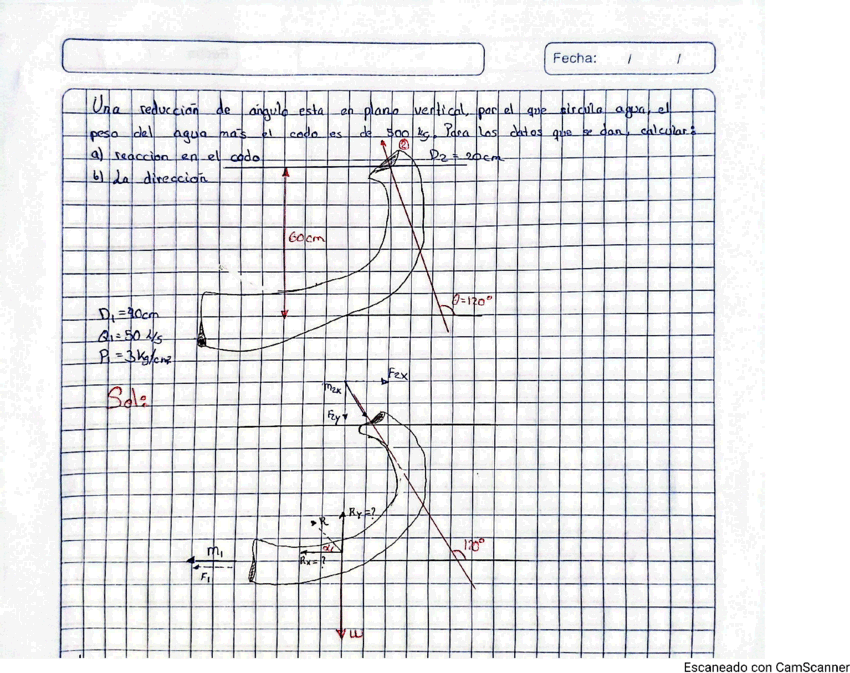 Fecha: / /
Una reducción de angulo esta en plano vertical, por el que circula agua, el
peso del agua mas el codo es de 500 kg. Para los datos que se dan, calcular:
a) reaccion en el codo
D2 = 20cm
b) La dirección
2
60cm
θ=120°
D1 = 40cm
Q1 = 50 L/s
P1 = 3 kg/cm2
Sol:
F2x
m2x
F2y
R
Ry = ?
α
Rx = ?
120°
m1
F1
W
Escaneado con CamScanner